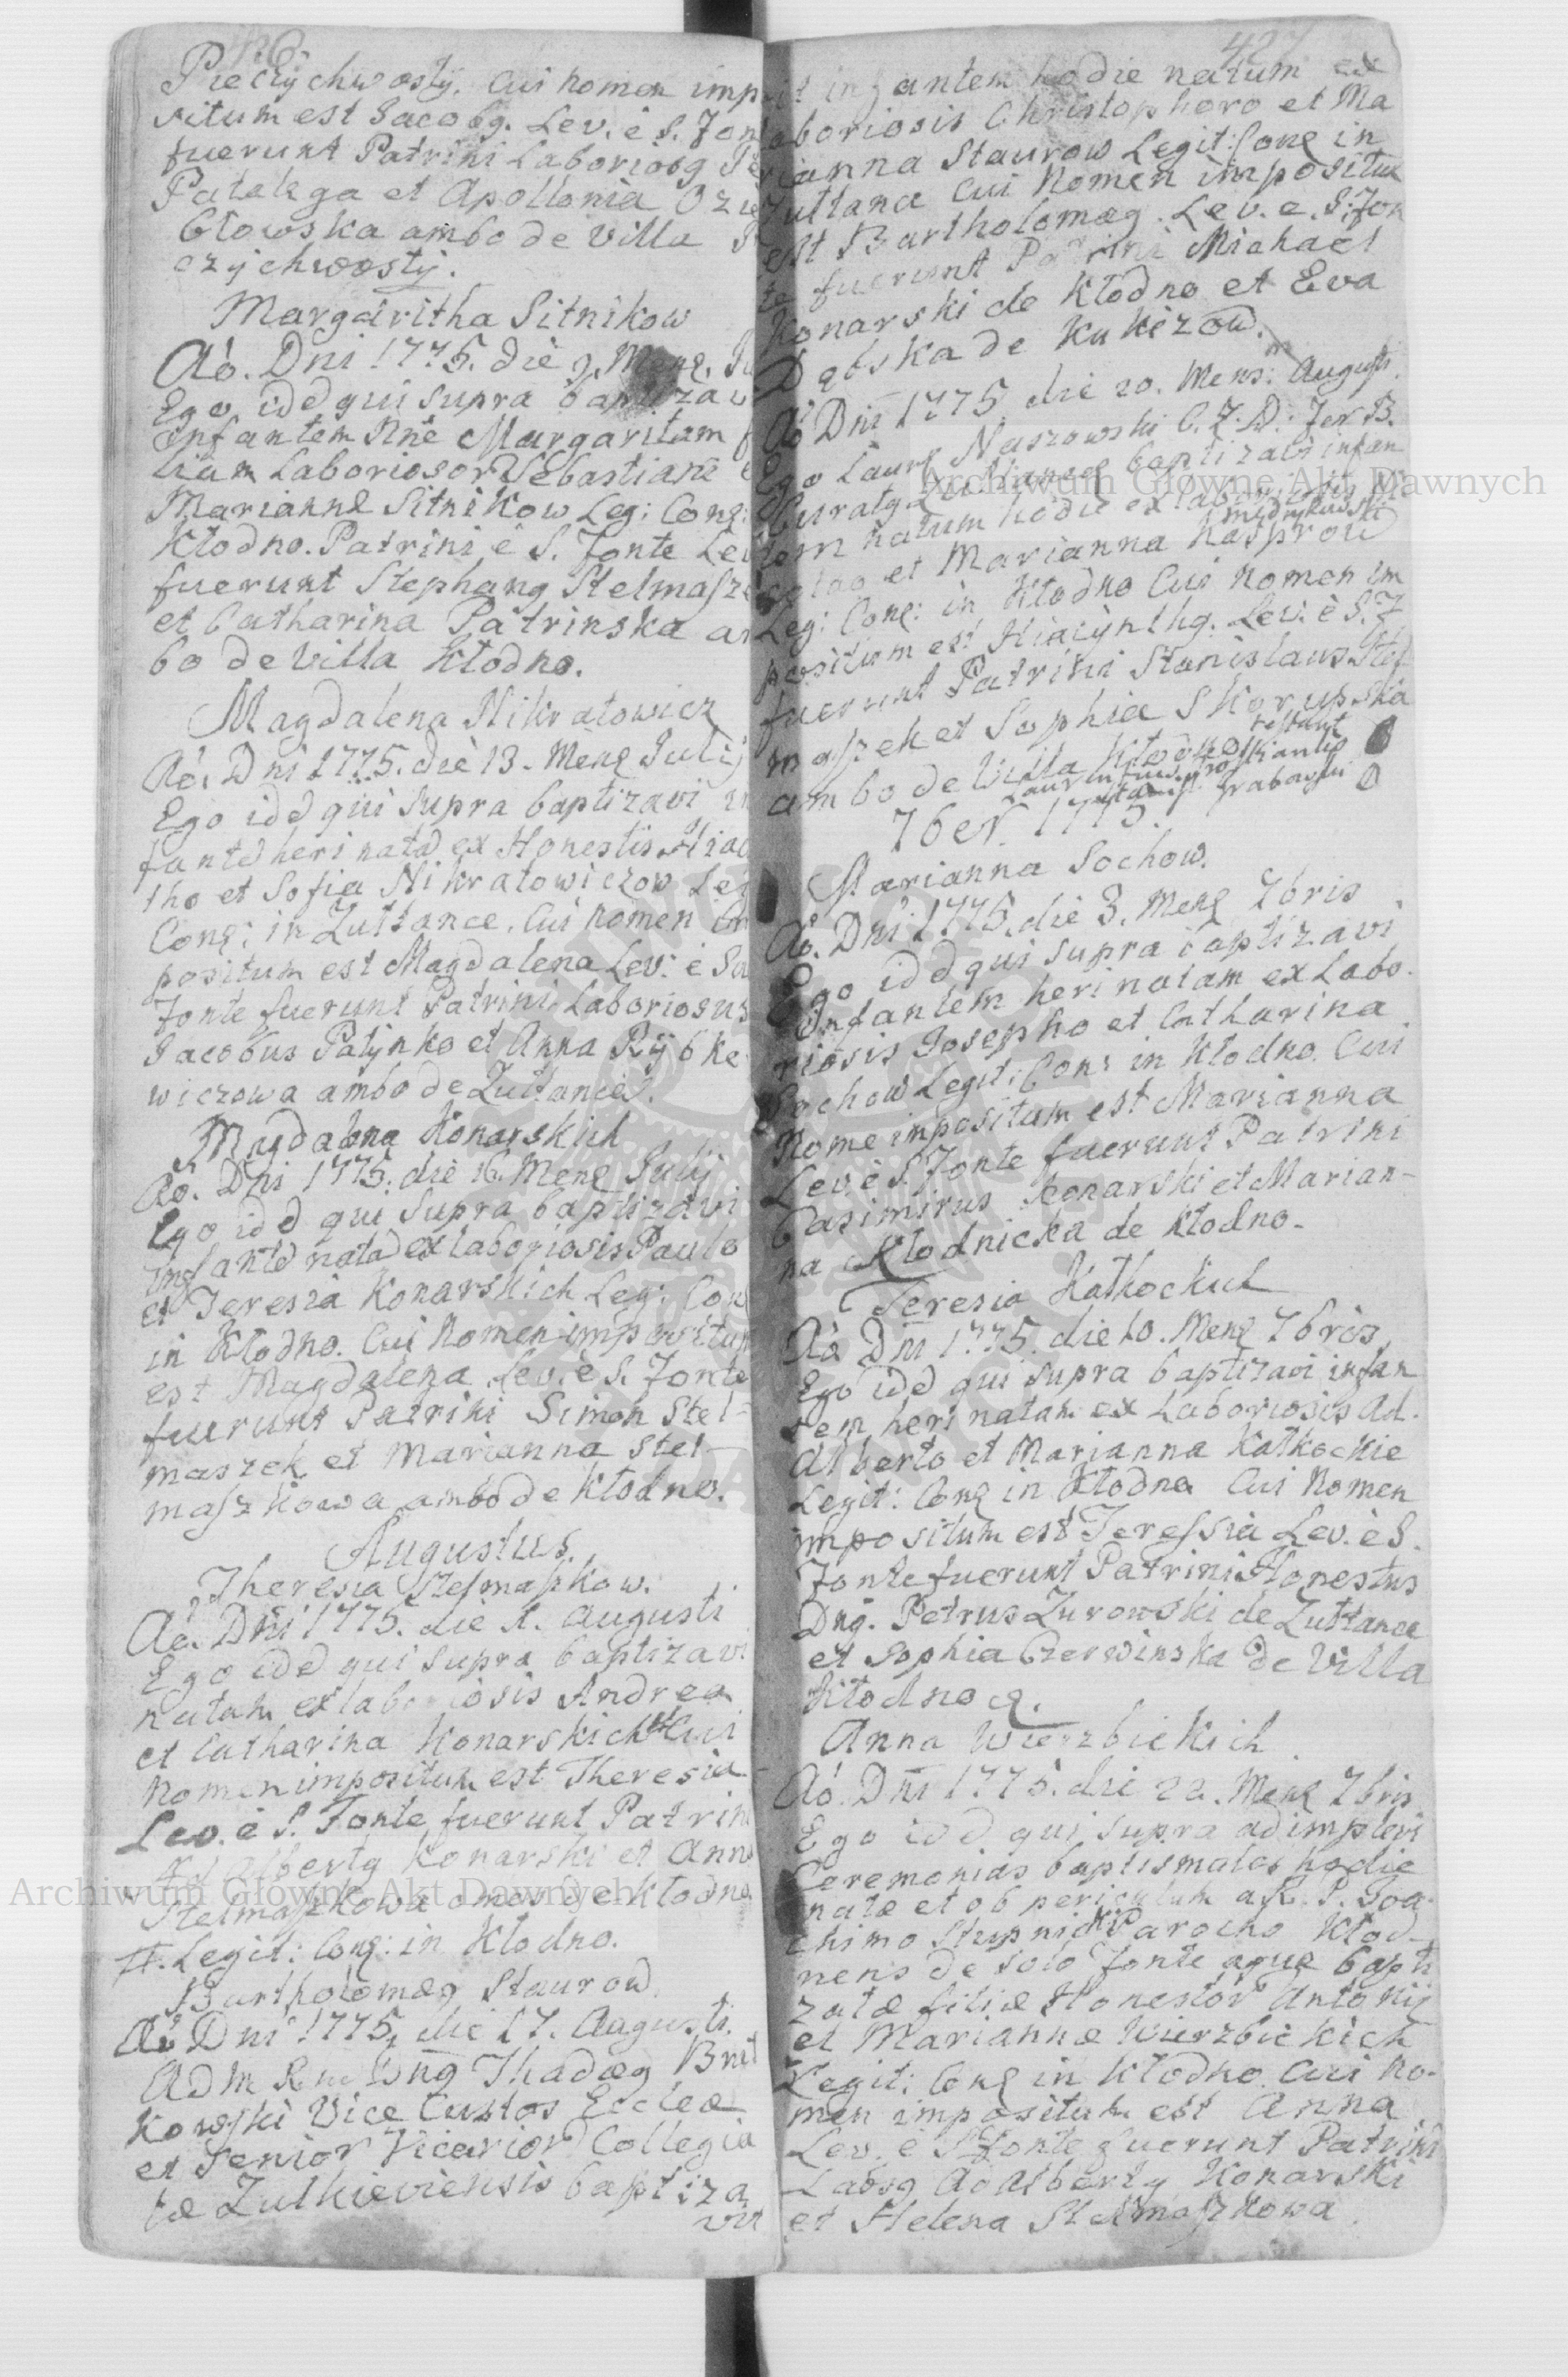 Pieczychwosty. Cui nomen impo
situm est Jacobg. Lev. è S. Fon
fuerunt Patrini Laboriosg
Patalaga et Apollonia
błowska ambo de Villa
czychwosty.
Margaritha Sitnikow
Aò. Dni 1775. die 9. Menę. Ju
Ego idd qui supra baptizavi
Infantem Nne Margaritam f
liam Laboriosor Sebastiani e
Mariannę Sitnikow Leg: Conę:
Kłodno. Patrini è S. Fonte Lev
fuerunt Stephang Stelmasze
et Catharina Patrinska am
bo de Villa Kłodno.
Magdalena Nikratowicz
Aò. Dni 1775. diè 13. Menę Julij
Ego idd qui supra baptizavi in
fantd heri natd ex Honestis Hiac
tho et Sofia Nikratowiczow Leg
Conę: in Zułtance. Cui nomen im
positum est Magdalena Lev: è Sa
Fonte fuerunt Patrini Laboriosus
Jacobus Patynko et Anna Rybke
wiczowa ambo de Zułtanice.
Magdalena Konarskich
Aò. Dni 1775. diè 16. Menę Julij
Ego idd qui supra baptizavi
Infantd natd ex laboriosis Paulo
et Teresia Konarskich Leg: Conę
in Kłodno. Cui Nomen impositum
est Magdalena Lev. è S. Fonte
fuerunt Patrini Simon Stel-
maszek et Marianna Stel-
maszkowa ambo de Kłodno.
Augustus.
Theresia Stelmaszkow.
Aò. Dni 1775. die 1. Augusti
Ego idd qui supra baptizavi
natam ex laboriosis Andrea
et Catharina Konarskich # Cui
Nomen impositum est Theresia
Lev. è S. Fonte fuerunt Patrini
Albertg Konarski et Anna
Stelmaszkowa omes de Kłodno
#. Legit: Conę: in Kłodno.
Bartholomæg Staurow
Aò Dni 1775. die 17. Augusti.
Adm Rndus Dng Thadæg
kowski Vice Custos Eccleæ
et Senior Vicarior Collegia
tæ Zulkieviensis baptiza
vit
427
it infantem hodie natum ex
Laboriosis Christophoro et Ma
rianna Staurow Legit: Conę in
Zułtance Cui Nomen impositum
est Bartholomæg. Lev. e. S. Fon
te fuerunt Patrini Michael
Konarski de Kłodno et Eva
Dębska de Kukizow.
Aò Dni 1775 die 20. Mens: Augusti
Ego Laurę Naszowski C. Z. D: Fer B.
Curatg Zułtancę baptizavi infan
tem natum hodie ex laboriosis Ni
colao et Marianna Kasprow
Leg: Conę: in Kłodno Cui Nomen im
positum est Hiacynthg. Lev. è S. F
fuerunt Patrini Stanislaus Stel
maszek et Sophia Skorupska
ambo de Villa Kłodno
7ber. 1775.
Marianna Sochow.
Aò. Dni 1775. die 3. Menę 7bris
Ego idd qui supra baptizavi
Infantem heri natam ex Labo
riosis Josepho et Catharina
Sochow Legit: Con: in Kłodno. Cui
Nome impositum est Marianna
Lev è S. Fonte fuerunt Patrini
Casimirus Konarski et Marian-
na Kłodnicka de Kłodno-
Teresia Katkockich
Aò Dni 1775. die 10. Menę 7bris
Ego idd qui supra baptizavi infan
tem heri natam ex Laboriosis Ad.
Alberto et Marianna Katkockie
Legit: Conę in Kłodno Cui Nomen
impositum est Teressia Lev. è S.
Fonte fuerunt Patrini Honestus
Dng. Petrus Zurowski de Zułtance
et Sophia Czerwinska de Villa
Kłodno
Anna Wierzbickich
Aò. Dni 1775. die 22. Menę 7bris
Ego idd qui supra adimplevi
Ceremonias baptismales hodie
natæ et ob periculum a R. P. Joa
chimo Stupnicki Parocho Kłod-
nens de solo fonte aquæ bapti
zatæ filiæ Honestor Antonij
et Mariannæ Wierzbickich
Legit: Conę in Kłodno. Cui No-
men impositum est Anna
Lev. è S Fonte fuerunt Patrini
Labsg Adalbertg Konarski
et Helena Stelmaszkowa.
Archiwum Główne Akt Dawnych
Archiwum Główne Akt Dawnych